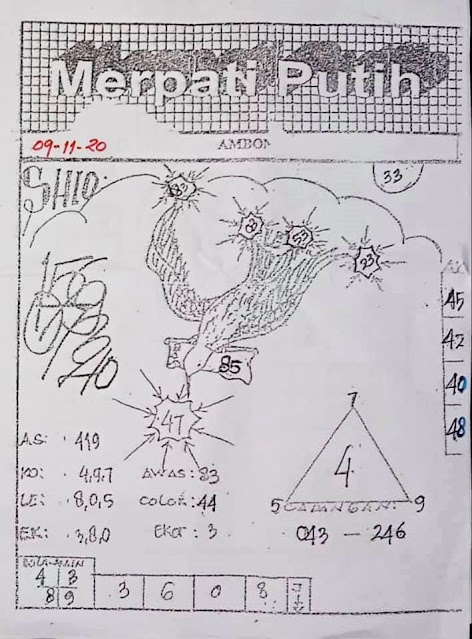 Merpati Putih
09-11-20
AMBON
SHIO
33
83
83
53
33
85
47
45
42
40
48
AS: 419
KO: 4.9.7 AWAS: 83
LE: 8,0,5 COLOK: 44
EK: 3,8,0 Ekor: 3
7
4
5 CADANGAN 9
043 - 246
4 3
8 9
3 6 0 8